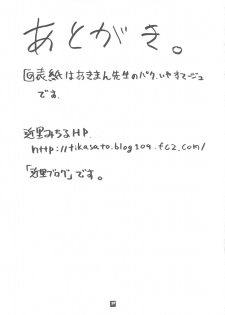 あとがき。
回表紙はおきまん先生のパク、いやオマージュ
です.
近里みちるHP.
http://tikasato.blog104.fc2.com/
「近里ブログ」です。